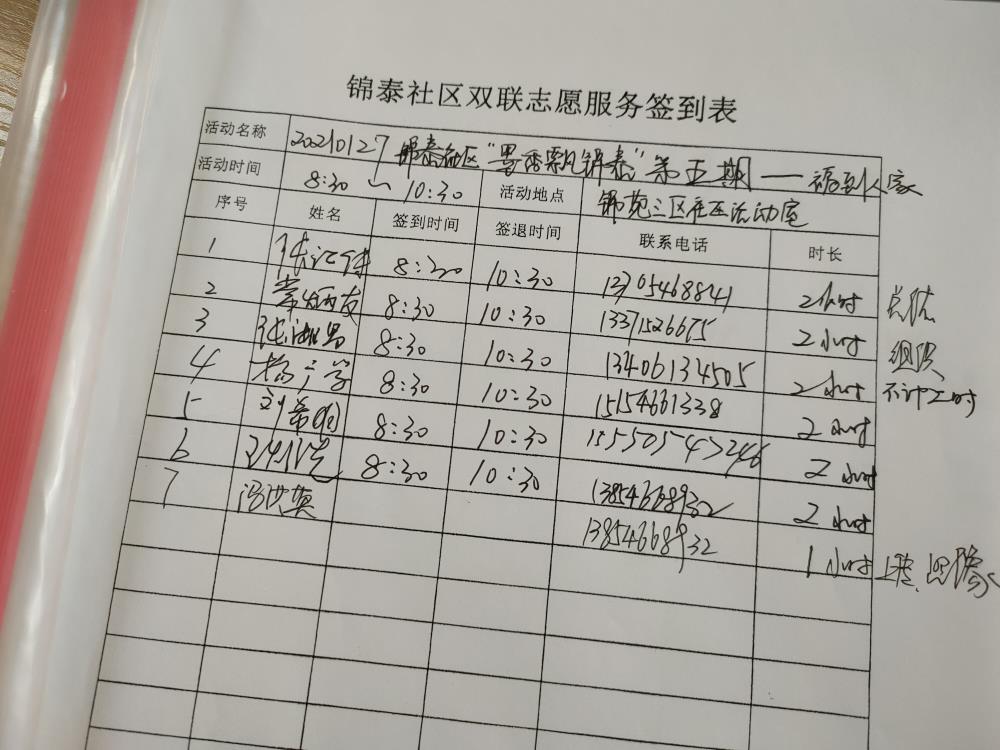 锦泰社区双联志愿服务签到表
活动名称 20210127 锦泰社区“墨香飘锦泰”第五期——福到人家
活动时间 8:30 ～ 10:30 活动地点 锦苑三区社区活动室
序号 姓名 签到时间 签退时间 联系电话 时长
1 8:30 10:30 13705468841 2小时 总体
2 8:30 10:30 13371526675 2小时 组织
3 8:30 10:30 13406134505 2小时 不计工时
4 杨广学 8:30 10:30 15154661338 2小时
5 刘希刚 8:30 10:30 15550543246 2小时
6 8:30 10:30 13854668932 2小时
7 冯洪英 13854668932 1小时